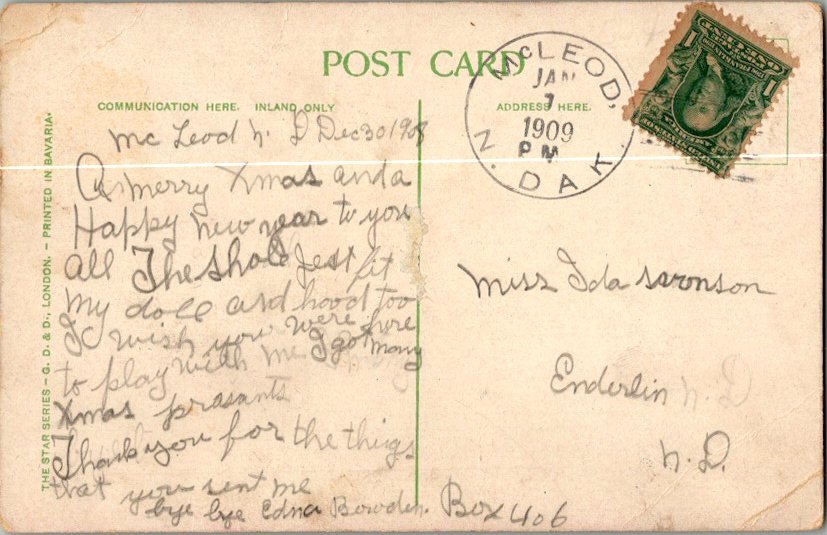 POST CARD
COMMUNICATION HERE. INLAND ONLY
ADDRESS HERE.
THE STAR SERIES – G. D. & D., LONDON. – PRINTED IN BAVARIA.
McLEOD,
JAN
1909
PM
N. DAK.
ONE CENT
1
1
Mc Leod N. D Dec 30 1908
A merry Xmas and a
Happy new year to you
all The shold Jest fit
my doll and hood too
I wish you were here
to play with me I got many
Xmas prasants
Thank you for the things
that you sent me
bye bye Edna Bowden.
Miss Ida swonson
Enderlin N. D
N. D.
Box 406